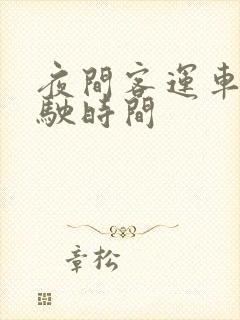 夜間客運車
駛時間
章松